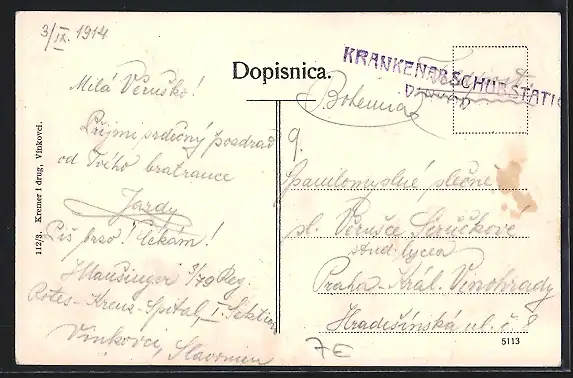 3/IX. 1914
Dopisnica.
KRANKENABSCHUBSTATIO
Feldpost
Bohemia
Milá Věruško!
Přijmi srdečný pozdrav
od Tvého bratrance
Jardy
Piš brzo! Čekám!
9/79 Reg.
Rotes-Kreuz-Spital, I. Sektion
Vinkovci, Slavonien
112/3. Kremer i drug, Vinkovci.
slečně
sl. Věrušce
stud. lycea
Praha-Král. Vinohrady
Hradešínská ul. č. 8
7E
5113